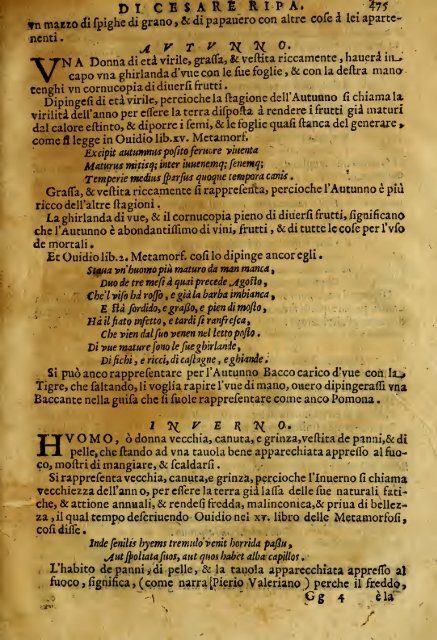 DI CESARE RIPA. 475
vn mazzo di spighe di grano, & di papauero con altre cose à lei aparte-
nenti.
AVTVNNO.
VNA Donna di età virile, grassa, & vestita riccamente, hauerà in
capo vna ghirlanda d'vue con le sue foglie, & con la destra mano
tenghi vn cornucopia di diuersi frutti.
Dipingesi di età virile, percioche la stagione dell'Autunno si chiama la
virilità dell'anno per essere la terra disposta à rendere i frutti già maturi
dal calore estiuto, & diporre i semi, & le foglie quasi stanca del generare,
come si legge in Ouidio lib. xv. Metamorf.
Excipit autumnus posito feruore viuenta
Maturus mitisq; inter iuuenemq; senemq;
Temperie medius sparsus quoque tempora canis.
Grassa, & vestita riccamente si rappresenta, percioche l'Autunno è più
ricco dell'altre stagioni.
La ghirlanda di vue, & il cornucopia pieno di diuersi frutti, significano
che l'Autunno è abondantissimo di vini, frutti, & di tutte le cose per l'vso
de mortali.
Et Ouidio lib. 2. Metamorf. così lo dipinge ancor egli.
Staua vn'huomo più maturo da man manca,
Duo de tre mesi à quai precede Agosto,
Che'l viso hà rosso, e già la barba imbianca,
E stà sordido, e grasso, e pien di mosto,
Hà il fiato infetto, e tardi si ranfresca,
Che vien dal suo venen nel letto posto.
Di vue mature sono le sue ghirlande,
Di fichi, e ricci, di castagne, e ghiande.
Si può anco rappresentare per l'Autunno Bacco carico d'vue con la
Tigre, che saltando, li voglia rapire l'vue di mano, ouero dipingerassi vna
Baccante nella guisa che si suole rappresentare come anco Pomona.
INVERNO.
HVOMO, ò donna vecchia, canuta, e grinza, vestita de panni, & di
pelle, che stando ad vna tauola bene apparechiata appresso al fuo-
co, mostri di mangiare, & scaldarsi.
Si rappresenta vecchia, canuta, e grinza, percioche l'Inuerno si chiama
vecchiezza dell'anno, per essere la terra già lassa delle sue naturali fati-
che, & attione annuali, & rendesi fredda, malinconica, & priua di bellez-
za, il qual tempo descriuendo Ouidio nel xv. libro delle Metamorfosi,
così disse.
Inde senilis hyems tremulo venit horrida passu,
Aut spoliata suos, aut quos habet alba capillos.
L'habito de panni, di pelle, & la tauola apparecchiata appresso al
fuoco, significa, (come narra Pierio Valeriano) perche il freddo,
Gg 4 è la